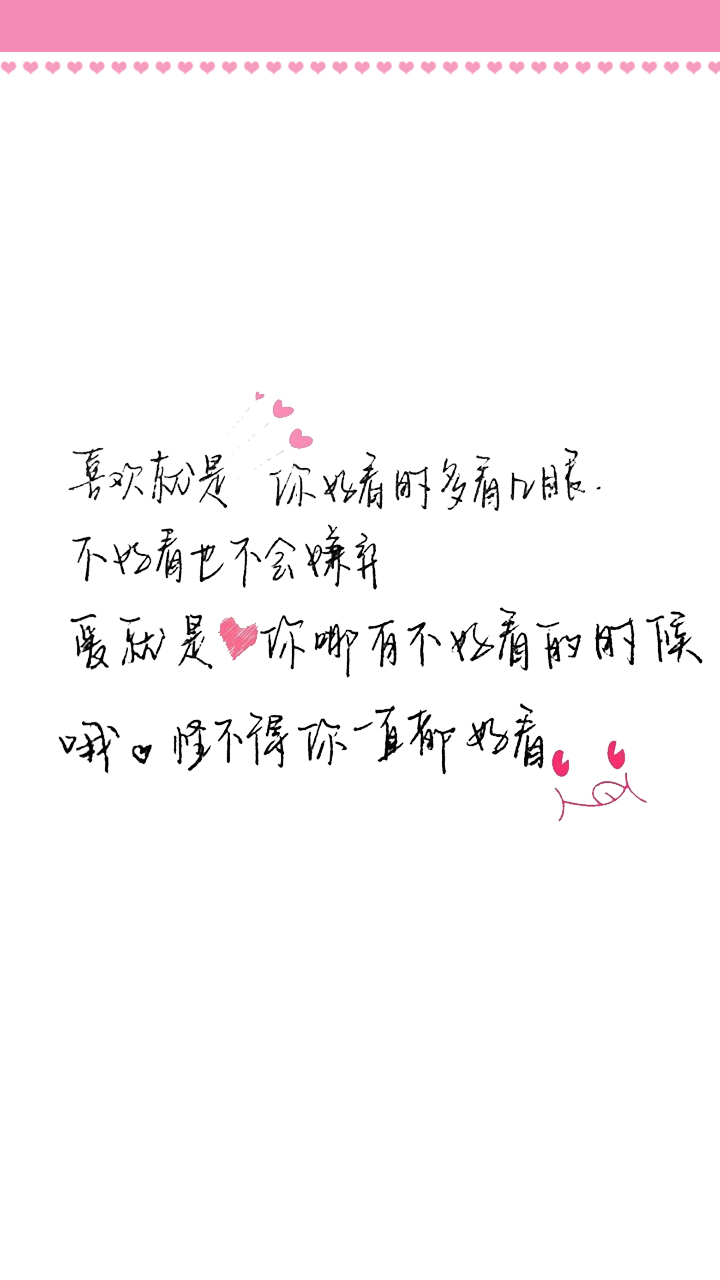 喜欢就是 你好看时多看几眼.
不好看也不会嫌弃
爱就是 你哪有不好看的时候
哦。怪不得你一直都好看